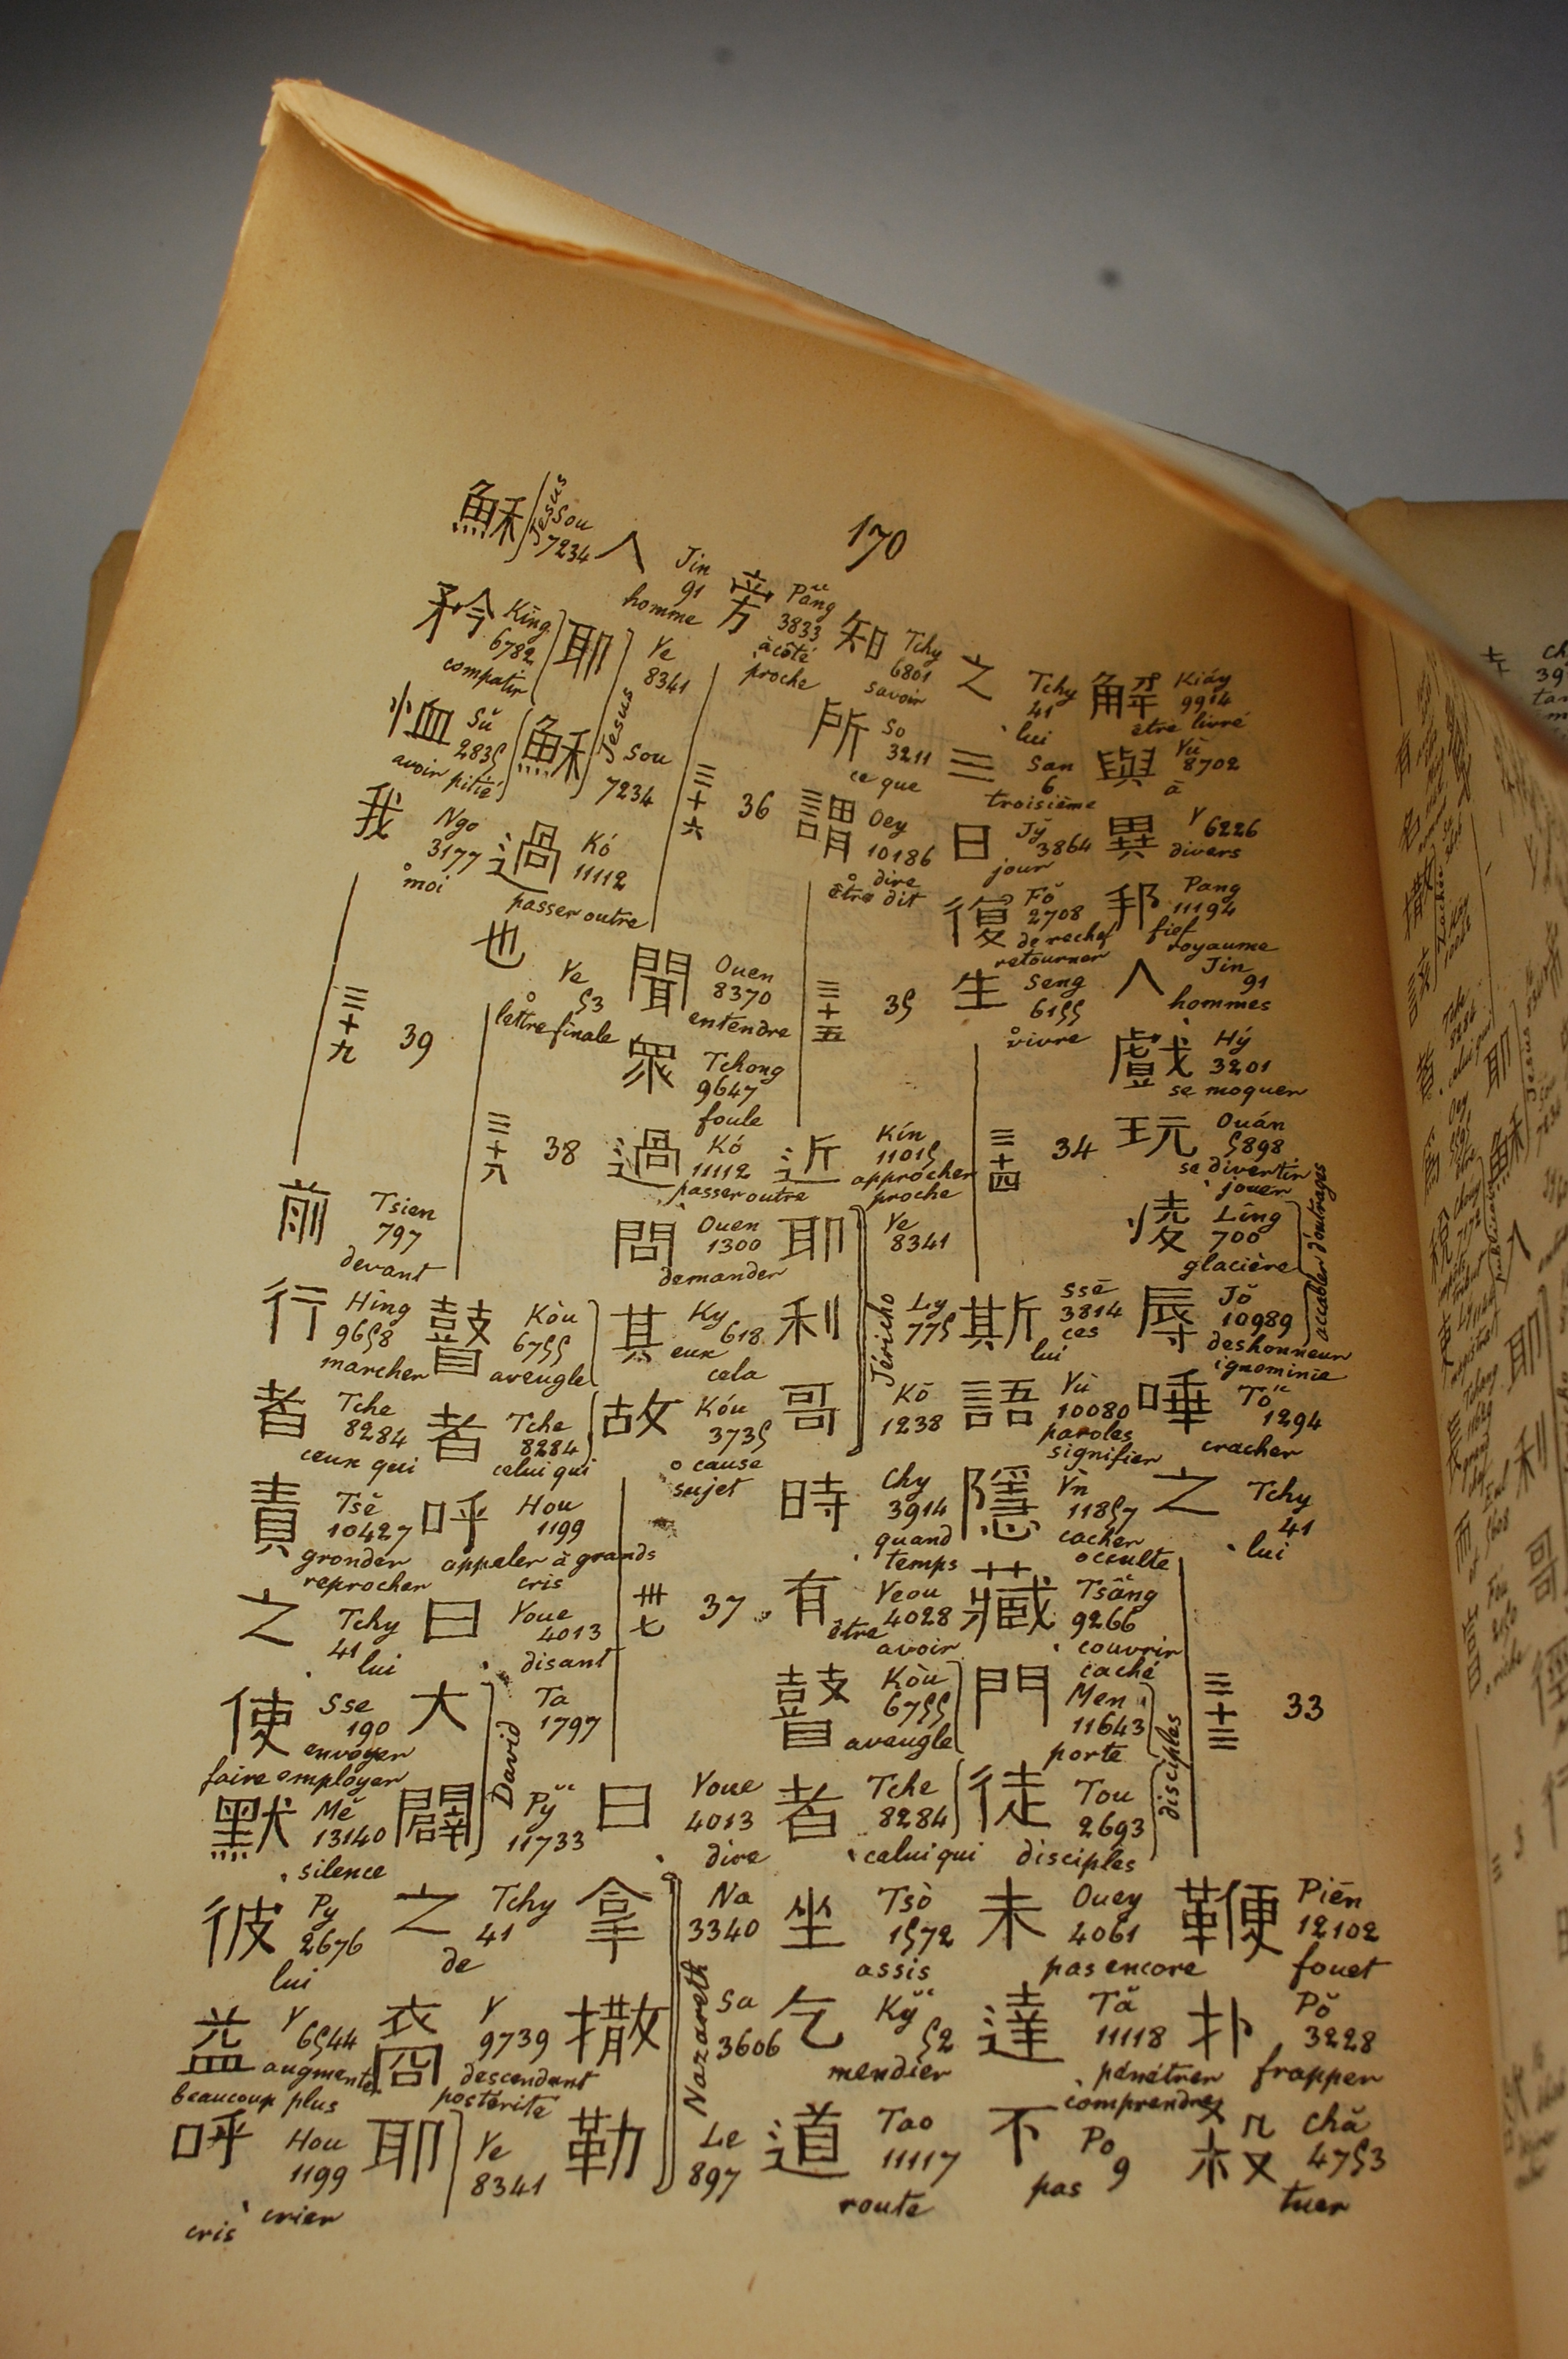 170
解 Kiáy 9914 être livré
與 Yù 8702 à
異 Y 6226 divers
邦 Pang 11194 fief royaume
人 Jin 91 hommes
戲 Hý 3201 se moquer
玩 Ouán 5898 se divertir jouer
凌 Lîng 700 glacière
辱 Jŏ 10989 deshonneur ignominie
accabler d'outrages
唾 Tŏ 1294 cracher
之 Tchy 41 lui
三十三 33
鞭 Piēn 12102 fouet
扑 Pŏ 3228 frapper
殺 chă 4753 tuer
之 Tchy 41 lui
三 San 6 troisième
日 Jy̆ 3864 jour
復 Fŏ 2708 derechef retourner
生 Seng 6155 vivre
三十四 34
斯 ssē 3814 ces lui
語 Yù 10080 paroles signifier
隱 Yn 11857 cacher occulte
藏 Tsâng 9266 couvrir caché
門 Men 11643 porte
徒 Tou 2693 disciples
disciples
未 Ouey 4061 pas encore
達 Tă 11118 pénétrer comprendre
不 Po 9 pas
知 Tchy 6801 savoir
所 So 3211 ce que
謂 Oey 10186 dire être dit
三十五 35
近 Kín 11015 approcher proche
耶 Ye 8341
利 Ly 775
哥 Kō 1238
Jéricho
時 Chy 3914 quand temps
有 Yeou 4028 être avoir
瞽 Kòu 6755 aveugle
者 Tche 8284 celui qui
坐 Tsò 1572 assis
乞 Ky̆ 52 mendier
道 Tao 11117 route
旁 Pâng 3833 à côté proche
三十六 36
聞 Ouen 8370 entendre
眾 Tchong 9647 foule
過 Kó 11112 passer outre
問 Ouen 1300 demander
其 Ky 618 eux cela
故 Kóu 3735 cause sujet
卅七 37
曰 Youe 4013 dire
拿 Na 3340
撒 Sa 3606
勒 Le 897
Nazareth
人 Jin 91 homme
耶 Ye 8341
穌 Sou 7234
Jesus
過 Kó 11112 passer outre
也 Ye 53 lettre finale
三十八 38
瞽 Kòu 6755 aveugle
者 Tche 8284 celui qui
呼 Hou 1199 appeler à grands cris
曰 Youe 4013 disant
大 Ta 1797
闢 Py̆ 11733
David
之 Tchy 41 de
裔 Y 9739 descendant postérité
耶 Ye 8341
穌 Sou 7234
Jesus
矜 King 6782 compatir
恤 Sŭ 2835 avoir pitié
我 Ngo 3177 moi
三十九 39
前 Tsien 797 devant
行 Hing 9658 marcher
者 Tche 8284 ceux qui
責 Tsĕ 10427 gronder reprocher
之 Tchy 41 lui
使 Sse 190 envoyer faire employer
默 Mĕ 13140 silence
彼 Py 2676 lui
益 Y 6544 augmenter beaucoup plus
呼 Hou 1199 crier cris